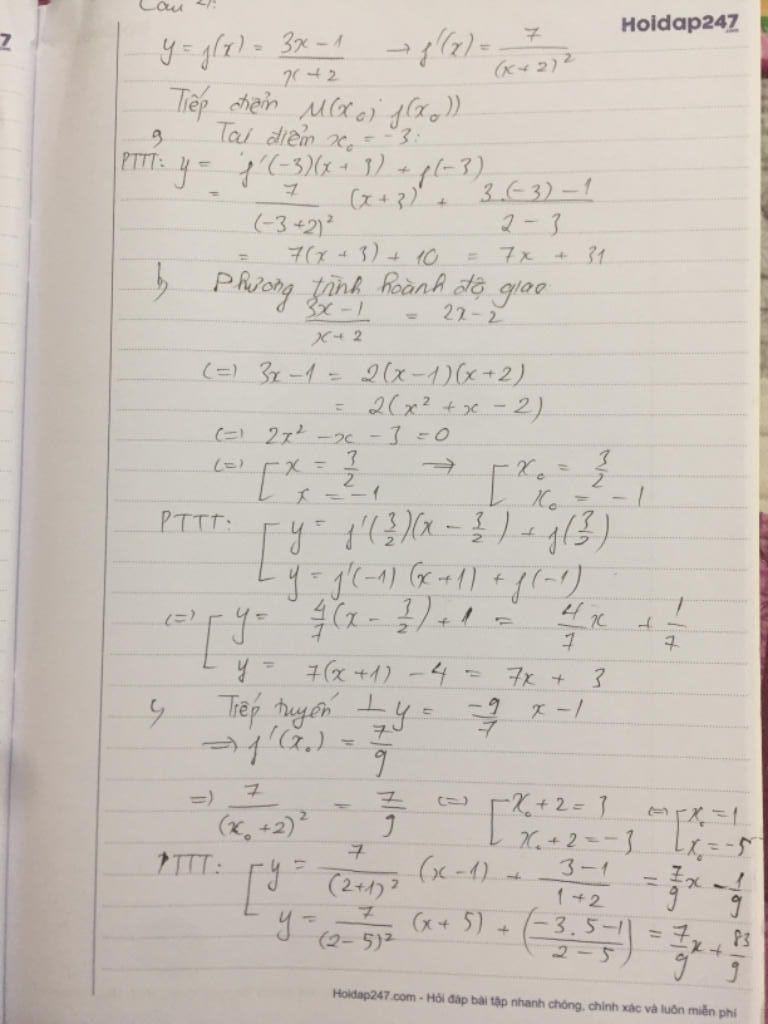 Câu 21:
Hoidap247
.com
7
y = f(x) = \frac{3x-1}{x+2} → f'(x) = \frac{7}{(x+2)^2}
Tiếp điểm M(x_0; f(x_0))
a, Tại điểm x_0 = -3:
PTTT: y = f'(-3)(x+3) + f(-3)
= \frac{7}{(-3+2)^2} (x+3) + \frac{3.(-3)-1}{2-3}
= 7(x+3) + 10 = 7x + 31
b, Phương trình hoành độ giao
\frac{3x-1}{x+2} = 2x-2
(=) 3x-1 = 2(x-1)(x+2)
= 2(x^2 + x - 2)
(=) 2x^2 - x - 3 = 0
(=) [ x = \frac{3}{2} → [ x_0 = \frac{3}{2}
x = -1 x_0 = -1
PTTT: [ y = f'(\frac{3}{2})(x - \frac{3}{2}) + f(\frac{3}{2})
y = f'(-1)(x+1) + f(-1)
(=) [ y = \frac{4}{7}(x - \frac{3}{2}) + 1 = \frac{4}{7}x + \frac{1}{7}
y = 7(x+1) - 4 = 7x + 3
c, Tiếp tuyến ⊥ y = \frac{-9}{7} x - 1
⇒ f'(x_0) = \frac{7}{9}
=) \frac{7}{(x_0+2)^2} = \frac{7}{9} (=) [ x_0+2 = 3 (=) [ x_0 = 1
x_0+2 = -3 x_0 = -5
PTTT: [ y = \frac{7}{(2+1)^2} (x-1) + \frac{3-1}{1+2} = \frac{7}{9}x - \frac{1}{9}
y = \frac{7}{(2-5)^2} (x+5) + (\frac{-3.5-1}{2-5}) = \frac{7}{9}x + \frac{83}{9}
Hoidap247.com - Hỏi đáp bài tập nhanh chóng, chính xác và luôn miễn phí